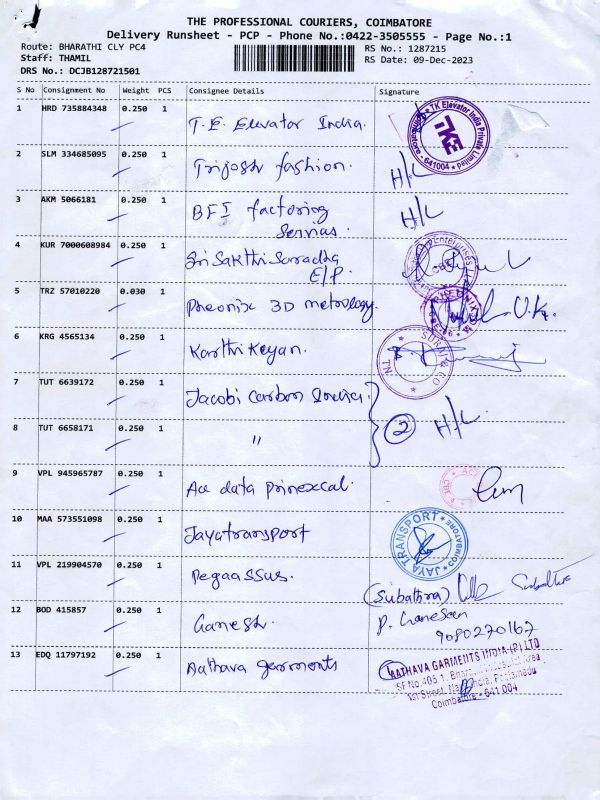 THE PROFESSIONAL COURIERS, COIMBATORE
Delivery Runsheet - PCP - Phone No.:0422-3505555 - Page No.:1
Route: BHARATHI CLY PC4
RS No.: 1287215
Staff: THAMIL
RS Date: 09-Dec-2023
DRS No.: DCJB128721501
S No Consignment No Weight PCS Consignee Details Signature
1 HRD 735884348 0.250 1 T.E. Elevator India. TK Elevator India Private Limited TKE 641004
2 SLM 334685095 0.250 1 Trijosh fashion. H/L
3 AKM 5066181 0.250 1 BFI factoring H/L
4 KUR 7000608984 0.250 1 Sri Sakthi Saradha
E/P.
5 TRZ 57010220 0.030 1 Pheonix 3D metrology. V.K.
6 KRG 4565134 1 0.250 Karthi Keyan. SURAJ & CO
7 TUT 6639172 0.250 1 Jacobi Carbon
8 TUT 6658171 0.250 1 " 2 H/L
9 VPL 945965787 0.250 1 Ace data
10 MAA 573551098 0.250 1 Jayatransport JAYA TRANSPORT COIMBATORE
11 VPL 219904570 0.250 1 Pegaassus. (Subathra)
12 BOD 415857 0.250 1 Ganesh. P. Ganesan
9080270167
13 EDQ 11797192 0.250 1 Aathava garments AATHAVA GARMENTS INDIA (P) LTD
SF No.405 1,
1st Street,
Coimbatore - 641 004